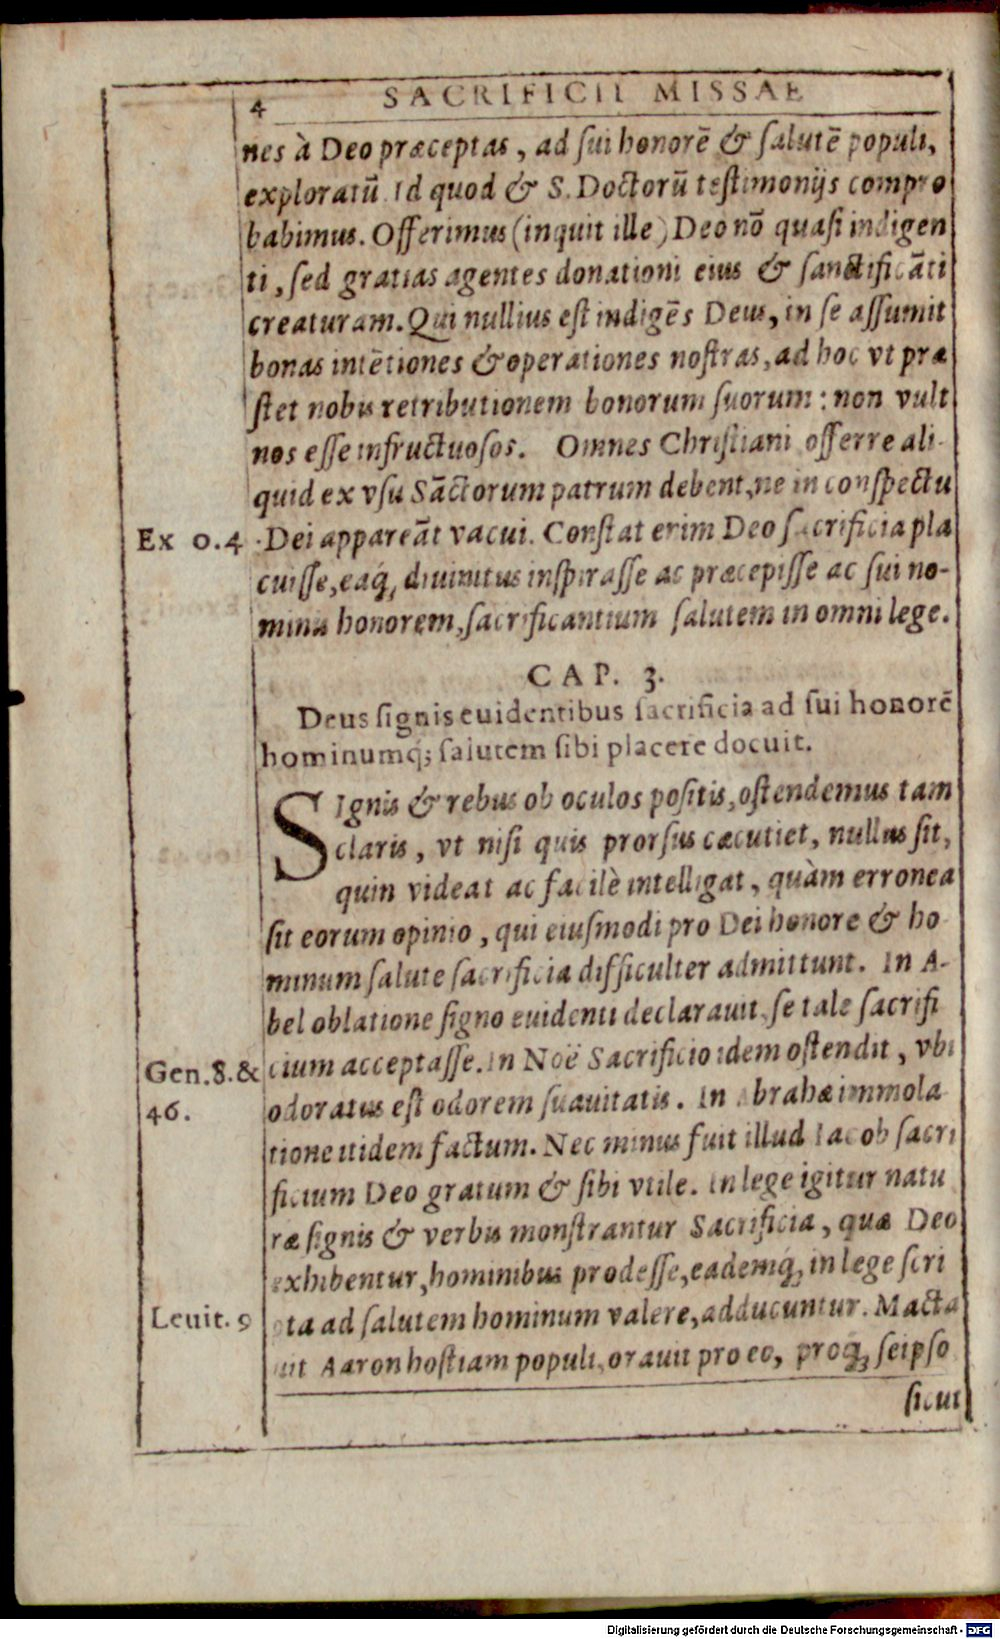 4 SACRIFICII MISSAE
nes à Deo præceptas, ad ſui honorē & ſalutē populi,
exploratū. Id quod & S. Doctorū teſtimonijs compro
babimus. Offerimus (inquit ille) Deo nō quaſi indigen
ti, ſed gratias agentes donationi eius & ſanctificāti
creaturam. Qui nullius eſt indigēs Deus, in ſe aſſumit
bonas intētiones & operationes noſtras, ad hoc vt præ
ſtet nobis retributionem bonorum ſuorum: non vult
nos eſſe infructuoſos. Omnes Chriſtiani offerre ali-
quid ex vſu Sāctorum patrum debent, ne in conſpectu
Ex o.4 Dei appareāt vacui. Conſtat enim Deo ſacrificia pla
cuiſſe, eaq́; diuinitus inſpiraſſe ac præcepiſſe ac ſui no-
minis honorem, ſacrificantium ſalutem in omni lege.
CAP. 3.
Deus ſignis euidentibus ſacrificia ad ſui honorē
hominumq́; ſalutem ſibi placere docuit.
SIgnis & rebus ob oculos poſitis, oſtendemus tam
claris, vt niſi quis prorſus cæcutiet, nullus ſit,
quin videat ac facilè intelligat, quàm erronea
ſit eorum opinio, qui eiuſmodi pro Dei honore & ho
minum ſalute ſacrificia difficulter admittunt. In A-
bel oblatione ſigno euidenti declarauit, ſe tale ſacrifi
Gen.8.& cium acceptaſſe. In Noë Sacrificio idem oſtendit, vbi
46. odoratus eſt odorem ſuauitatis. In Abrahæ immola
tione itidem factum. Nec minus fuit illud Iacob ſacri
ficium Deo gratum & ſibi vtile. In lege igitur natu
ræ ſignis & verbis monſtrantur Sacrificia, quæ Deo
exhibentur, hominibus prodeſſe, eademq́; in lege ſcri
Leuit. 9 pta ad ſalutem hominum valere, adducuntur. Macta
uit Aaron hoſtiam populi, orauit pro eo, proq́; ſeipſo
ſicut
Digitalisierung gefördert durch die Deutsche Forschungsgemeinschaft - DFG